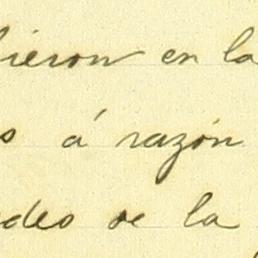 ieron en la
s á razón
des de la